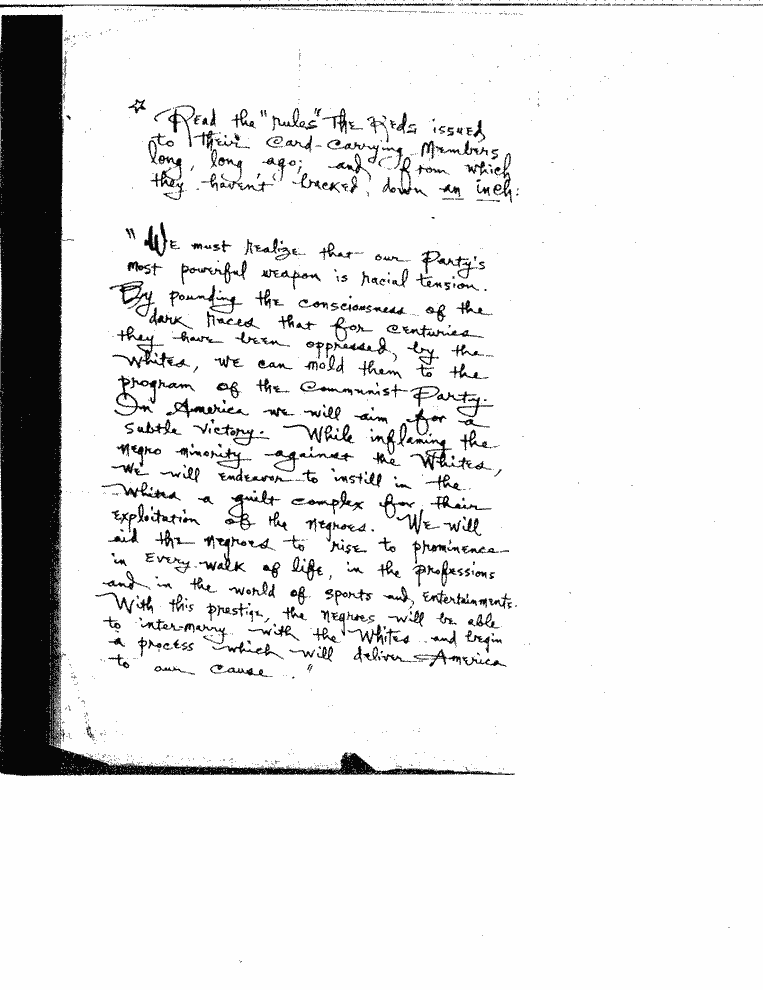 ☆ Read the "rules" The Reds issued
to Their Card-Carrying Members
long, long ago; and from which
they haven't backed down an inch:
"We must realize that our Party's
most powerful weapon is racial tension.
By pounding the consciousness of the
dark races that for centuries
they have been oppressed, by the
Whites, we can mold them to the
program of the Communist Party.
In America we will aim for a
subtle victory. While inflaming the
Negro minority against the Whites,
we will endeavor to instill in the
Whites a guilt complex for their
exploitation of the Negroes. We will
aid the Negroes to rise to prominence
in Every walk of life, in the professions
and in the world of sports and, Entertainments.
With this prestige, the Negroes will be able
to inter-marry with the Whites and begin
a process which will deliver America
to our cause."